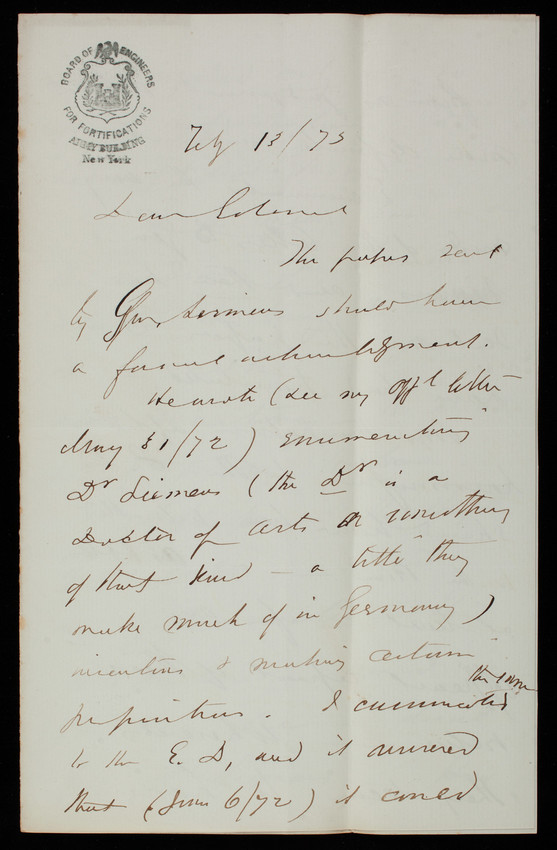 BOARD OF ENGINEERS
FOR FORTIFICATIONS
ARMY BUILDING
New York
Feby 13/73
Dear Colonel
The papers sent
by Siemens should have
a formal acknowledgment.
He wrote (see my offl letter
May 31/72) enumerating
Dr Siemens (the Dr is a
Doctor of Arts or something
of that kind – a title they
make much of in Germany)
inventions & making certain
propositions. I communicated
the same
to the E. D, and it answered
that (June 6/72) it could